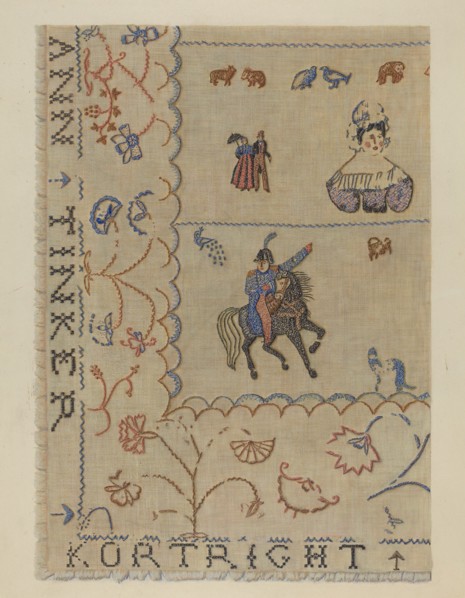 ANN TINKER
KORTRIGHT